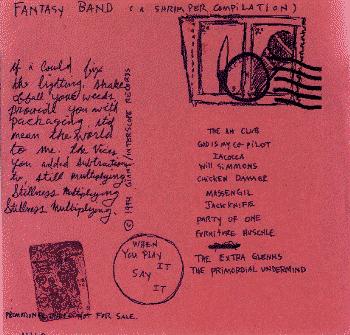 FANTASY BAND (A SHRIMPER COMPILATION)
If I could fix
the lighting, shake
off all your weeds,
provide you with
packaging, it'd
mean the world
to me. the Vices
you added subtractions
to, still multiplying.
Stillness Multiplying
Stillness Multiplying.
© 1994 GIANT/INTERSCOPE RECORDS
THE AH CLUB
GOD IS MY CO-PILOT
IACOCCA
WILL SIMMONS
CHICKEN DAMAGE
MASSENGIL
JACKKNIFE
PARTY OF ONE
FURNITURE HUSCHLE
THE EXTRA GLENNS
THE PRIMORDIAL UNDERMIND
WHEN
YOU PLAY
IT
SAY
IT
PROMOTIONAL NOT FOR SALE.